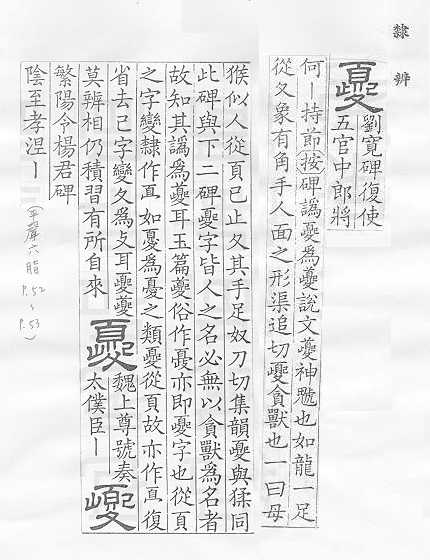 隸辨
夔
劉寬碑復使
五官中郎將
何丨持節(按)碑譌夒為夔說文夔神魖也如龍一足
從夊象有角手人面之形渠追切夒貪獸也一曰母
猴似人從頁巳止夊其手足奴刀切集韻夒與猱同
此碑與下二碑夒字皆人之名必無以貪獸為名者
故知其譌為夔耳玉篇夔俗作
亦即夒字也從頁
之字變隸作𦣻如憂為
之類夒從頁故亦作𦣻復
省去巳字變夊為攴耳夒夔
莫辨相仍積習有所自來
夔
魏上尊號奏
太僕臣丨
夔
繁陽令楊君碑
陰至孝涅丨
(平聲六脂 P.52~P.53)